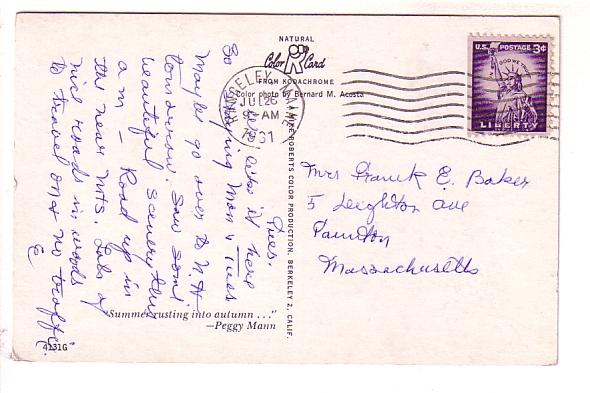 NATURAL
Color Card
FROM KODACHROME
Color photo by Bernard M. Acosta
JUL 26
9 AM
1961
MAINE
U.S. POSTAGE 3¢
IN GOD WE TRUST
LIBERTY
Tues.
like it here
So staying Mon & Tues
Maybe go over to N.H.
tomorrow Saw some
beautiful scenery this
a.m - Road up in
the near mts. Lots of
nice roads in woods
to travel on & no traffic.
E
Mrs Frank E. Baker
5 Leighton Ave
Taunton
Massachusetts
A MIKE ROBERTS COLOR PRODUCTION, BERKELEY 2, CALIF.
"Summer rusting into autumn . . ."
—Peggy Mann
4231G